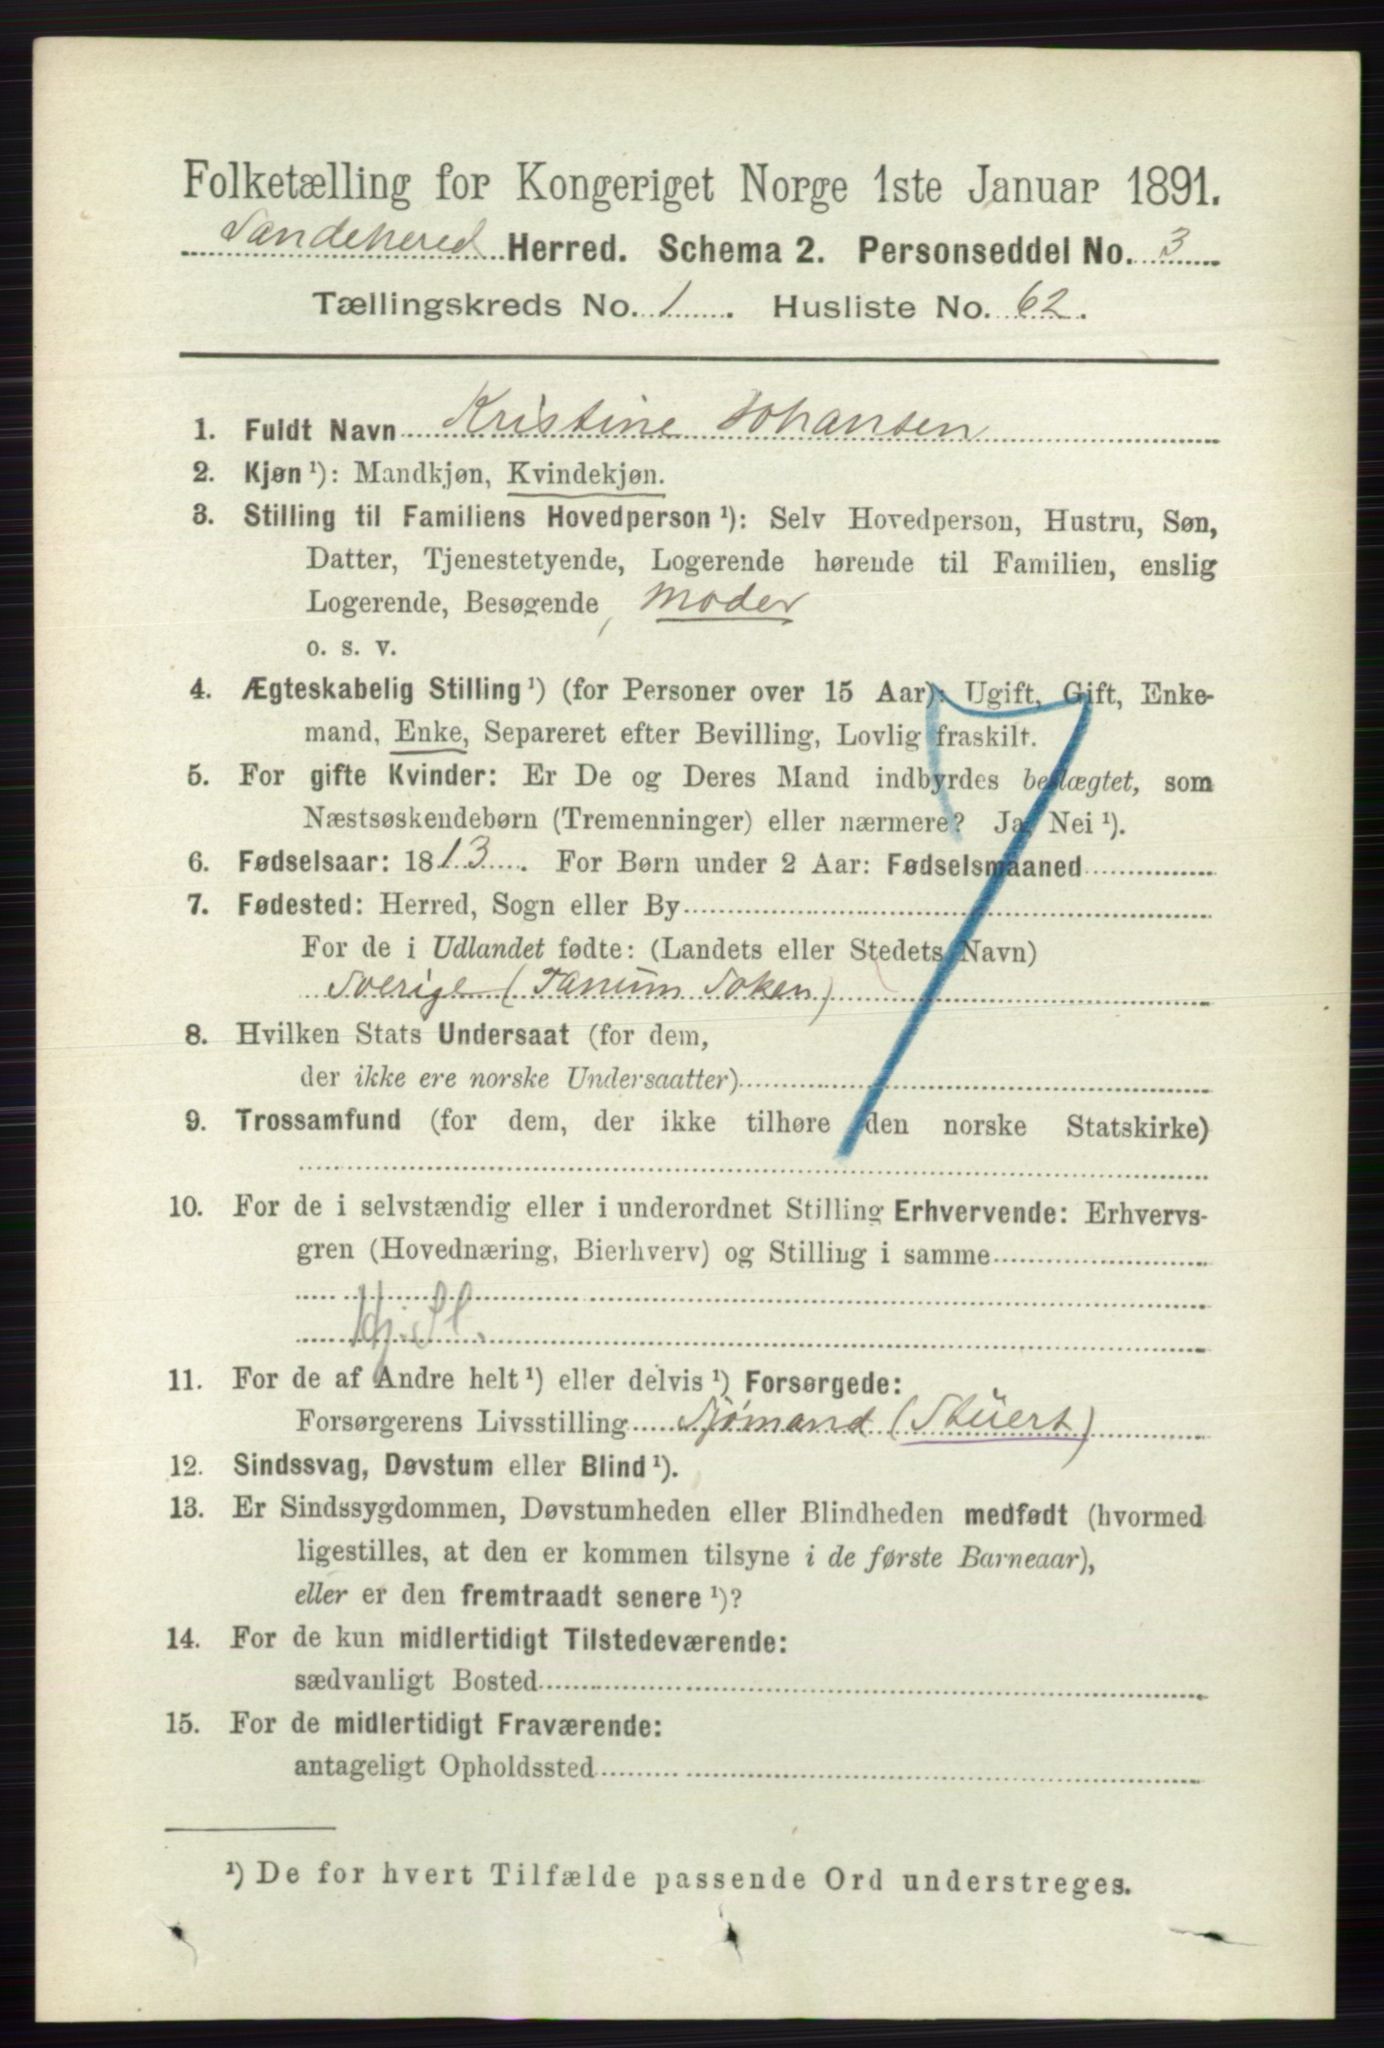 Folketælling for Kongeriget Norge 1ste Januar 1891.
Sandehered Herred. Schema 2. Personseddel No. 3
Tællingskreds No. 1. Husliste No. 62.
1. Fuldt Navn Kristine Johansen
2. Kjøn ¹): Mandkjøn, Kvindekjøn.
3. Stilling til Familiens Hovedperson ¹): Selv Hovedperson, Hustru, Søn,
Datter, Tjenestetyende, Logerende hørende til Familien, enslig
Logerende, Besøgende, Moder
o. s. v.
4. Ægteskabelig Stilling ¹) (for Personer over 15 Aar): Ugift, Gift, Enke-
mand, Enke, Separeret efter Bevilling, Lovlig fraskilt.
5. For gifte Kvinder: Er De og Deres Mand indbyrdes beslægtet, som
Næstsøskendebørn (Tremenninger) eller nærmere? Ja, Nei ¹).
6. Fødselsaar: 1813. For Børn under 2 Aar: Fødselsmaaned
7. Fødested: Herred, Sogn eller By
For de i Udlandet fødte: (Landets eller Stedets Navn)
Sverige (Tanum Soken)
8. Hvilken Stats Undersaat (for dem,
der ikke ere norske Undersaatter)
9. Trossamfund (for dem, der ikke tilhøre den norske Statskirke)
10. For de i selvstændig eller i underordnet Stilling Erhvervende: Erhvervs-
gren (Hovednæring, Bierhverv) og Stilling i samme
11. For de af Andre helt ¹) eller delvis ¹) Forsørgede:
Forsørgerens Livsstilling Sjømand (Stüert)
12. Sindssvag, Døvstum eller Blind ¹).
13. Er Sindssygdommen, Døvstumheden eller Blindheden medfødt (hvormed
ligestilles, at den er kommen tilsyne i de første Barneaar),
eller er den fremtraadt senere ¹)?
14. For de kun midlertidigt Tilstedeværende:
sædvanligt Bosted
15. For de midlertidigt Fraværende:
antageligt Opholdssted
¹) De for hvert Tilfælde passende Ord understreges.